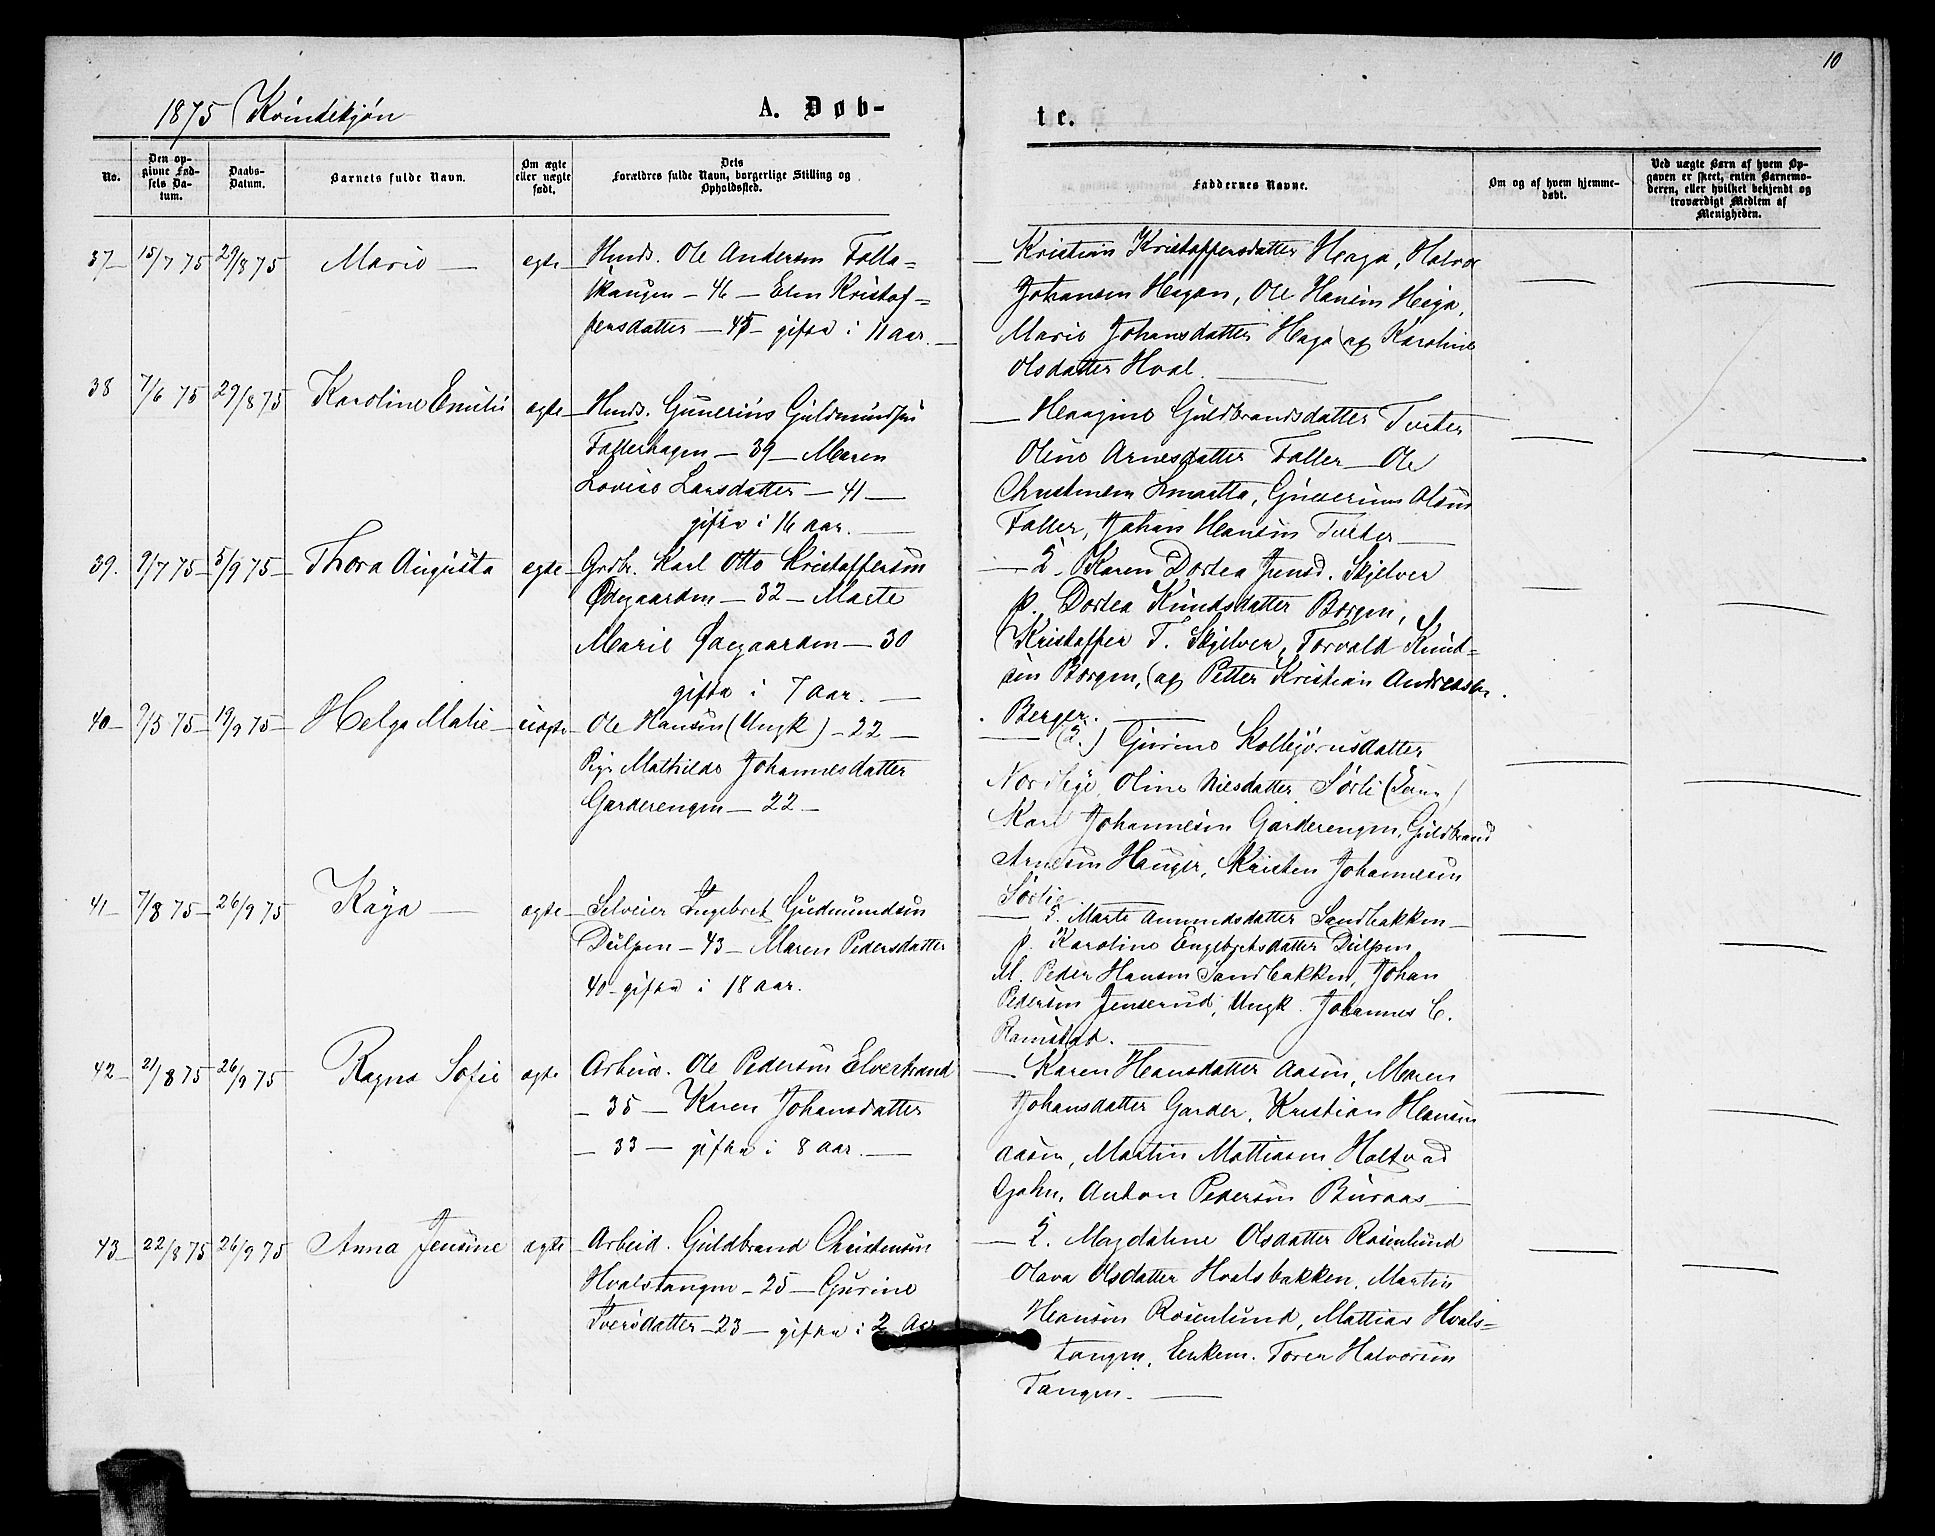 10
1875 Kvindekjøn
A. Døb-
te.
No.
Den op-
givne Fød-
sels Da-
tum.
Daabs-
Datum.
Barnets fulde Navn.
Om ægte
eller uægte
født.
Dets
Forældres fulde Navn, borgerlige Stilling og
Opholdssted.
Faddernes Navne.
Om og af hvem hjemme-
døbt.
Ved uægte Børn af hvem Op-
gaven er skeet, enten Barnemo-
deren, eller hvilket bekjendt og
troværdigt Medlem af
Menigheden.
37 15/7 75 29/8 75 Marie egte Husds. Ole Andersen Falla=
skaugen - 46 - Elen Kristof=
fersdatter - 45 - gifte i 11 aar.
Kristian Kristoffersdatter Haga, Halvor
Johansen Hagan, Ole Hansen Haga,
Marie Johansdatter Haga og Karoline
Olsdatter Hval.
38 7/6 75 29/8 75 Karoline Emilie egte Husds. Gunerius Guldmundsen
Fallerhagen - 39 - Maren
Lovise Larsdatter - 41 -
gifte i 16 aar.
Guldbrandsdatter Turter
Oline Arnesdatter Faller - Ole
Gunerius Olsen
Faller, Johan Hansen Turter
39. 9/7 75 5/9 75 Thora Augusta egte Grdbr. Karl Otto Kristoffersen
Ødegaarden - 32 - Marte
Marie Ødegaarden - 30
gifte i 7 aar.
Karen Dortea Jensd. Skjelver
p. Dortea Knudsdatter Borgen,
Kristoffer T. Skjelver, Torvald Knud-
sen Borgen, og Petter Kristian Andreassen
Berger.
40 9/5 75 19/9 75 Helga Matie uegte Ole Hansen (Ungk) - 22 -
Pige Mathilde Johannesdatter
Garderengen - 22 -
Gurine Kolbjørnsdatter
Oline Nilsdatter Sørli
Karl Johannesen Garderengen, Guldbrand
Arnesen Hauger, Kristen Johannesen
Sørlie
41 7/8 75 26/9 75 Kaja egte Selveier Ingebret Gudmundsen
Dülpen - 43 - Maren Pedersdatter
40 - gifte i 18 aar.
Marte Amundsdatter Sandbakken
p. Karoline Engebretsdatter Dülpen
M. Peder Hansen Sandbakken, Johan
Pedersen Jenserud, Ungk. Johannes C.
Ramstad.
42 21/8 75 26/9 75 Ragna Sofie egte Arbeid. Ole Pedersen Elvestrand
- 35 - Karen Johansdatter
- 33 - gifte i 8 aar.
Karen Hansdatter Aasen, Maren
Johansdatter Garder, Kristian Hansen
Aasen, Martin Mattiasen
Anton Pedersen Buraas
43 22/8 75 26/9 75 Anna Jensine egte Arbeid. Guldbrand Christensen
Hvalstangen - 25 - Gurine
Iversdatter - 23 - gifte i 2 Aar
Magdalene Olsdatter Rosenlund
Olava Olsdatter Hvalsbakken, Martin
Hansen Rosenlund, Mattias Hvals=
tangen, Enkem. Torer Halvorsen
Tangen.